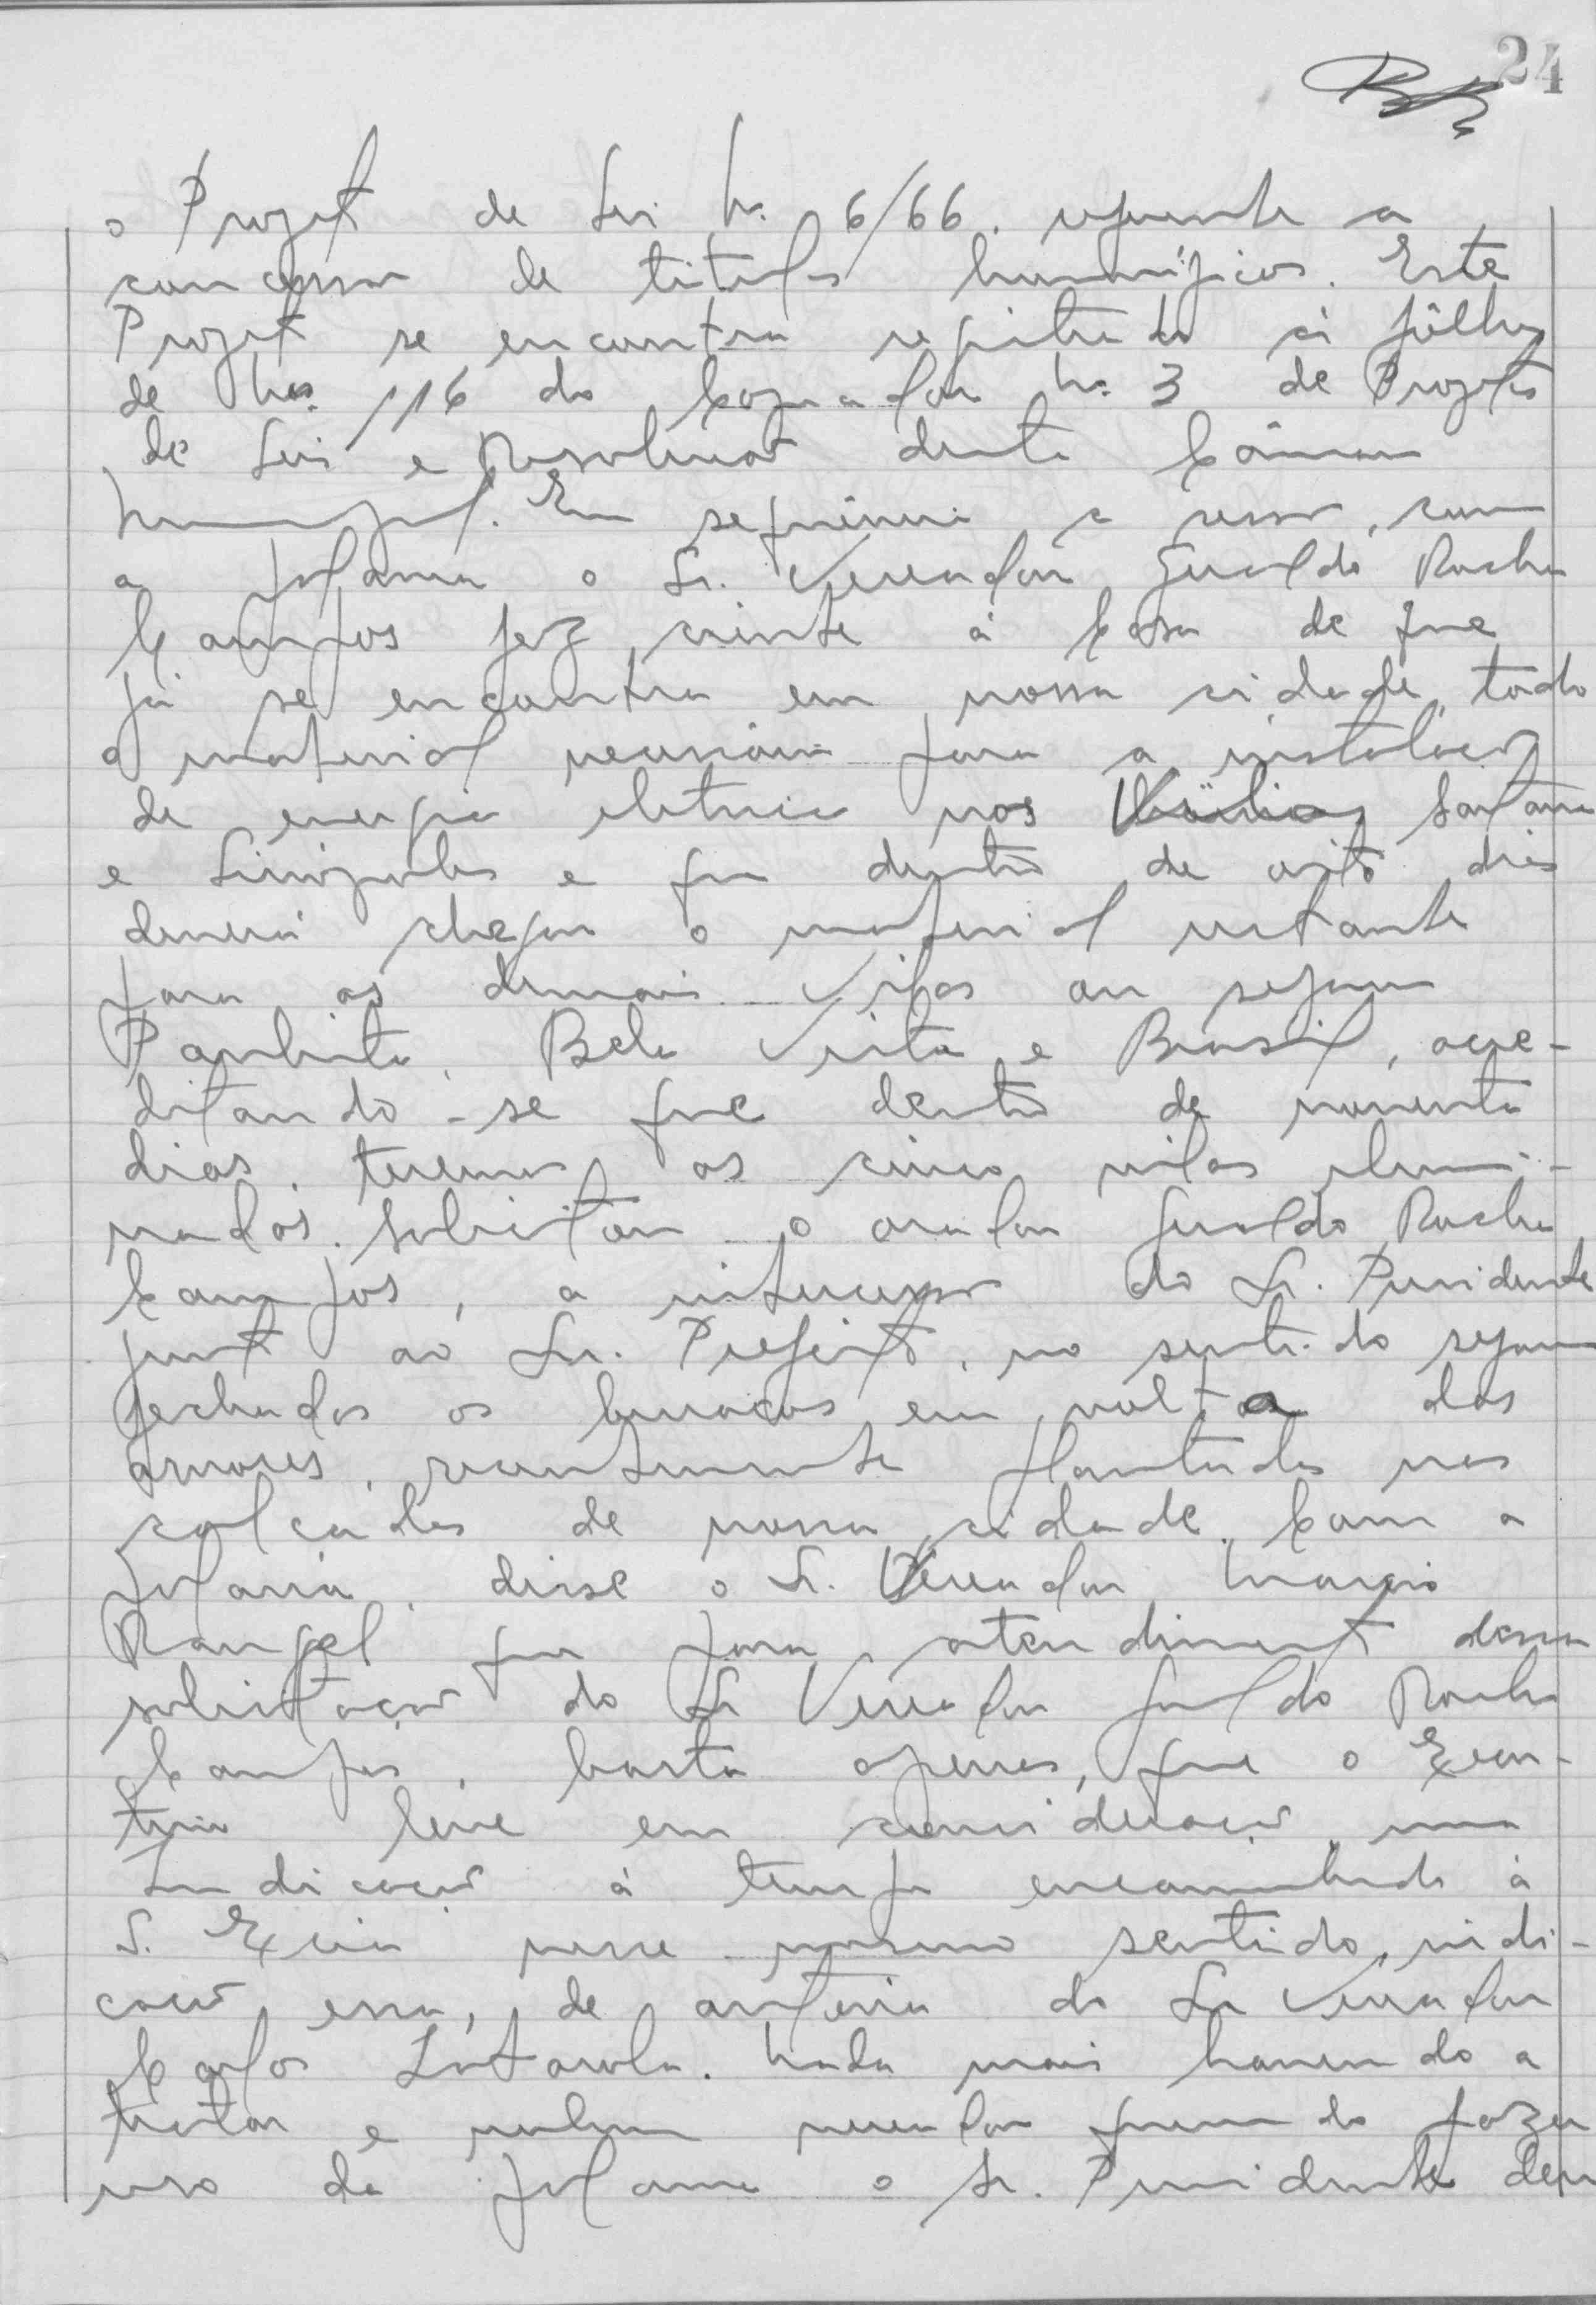 24
o Projeto de Lei Nº 6/66, referente a
concessão de titulos honoríficos. Este
Projeto se encontra registrado à fôlha
de Nº 116 do Copiador Nº 3 de Projetos
de Leis e Resoluções desta Câmara
Municipal. Em seguência a sessão, com
a palavra o Sr. Vereador Geraldo Rocha
Campos fez ciente à Casa de que
já se encontra em nossa cidade, todo
o material necessário para a instalação
de energia eletrica nas Santana
e e que dentro de oito dias
deverá chegar o material restante
para as demais Vilas ou sejam
Paulista, Bela Vista e Brasil, acre-
ditando-se que dentro de noventa
dias, teremos as cinco vilas ilumi-
nadas. Solicitou o orador Geraldo Rocha
Campos, a intercessão do Sr. Presidente
junto ao Sr. Prefeito, no sentido sejam
fechados os buracos em volta das
arvores, recentemente plantadas nas
calçadas de nossa cidade. Com a
palavra, disse o Sr. Vereador Marcio
Rangel que para atendimento dessa
solicitação do Sr Vereador Geraldo Rocha
Campos, basta apenas, que o Execu-
tivo leve em consideração, uma
Indicação à tempo encaminhada à
S. Excia nesse mesmo sentido, indi-
cação essa, de autoria do Sr Vereador
Carlos . Nada mais havendo a
tratar e nenhum vereador querendo fazer
uso da palavra o Sr. Presidente deu